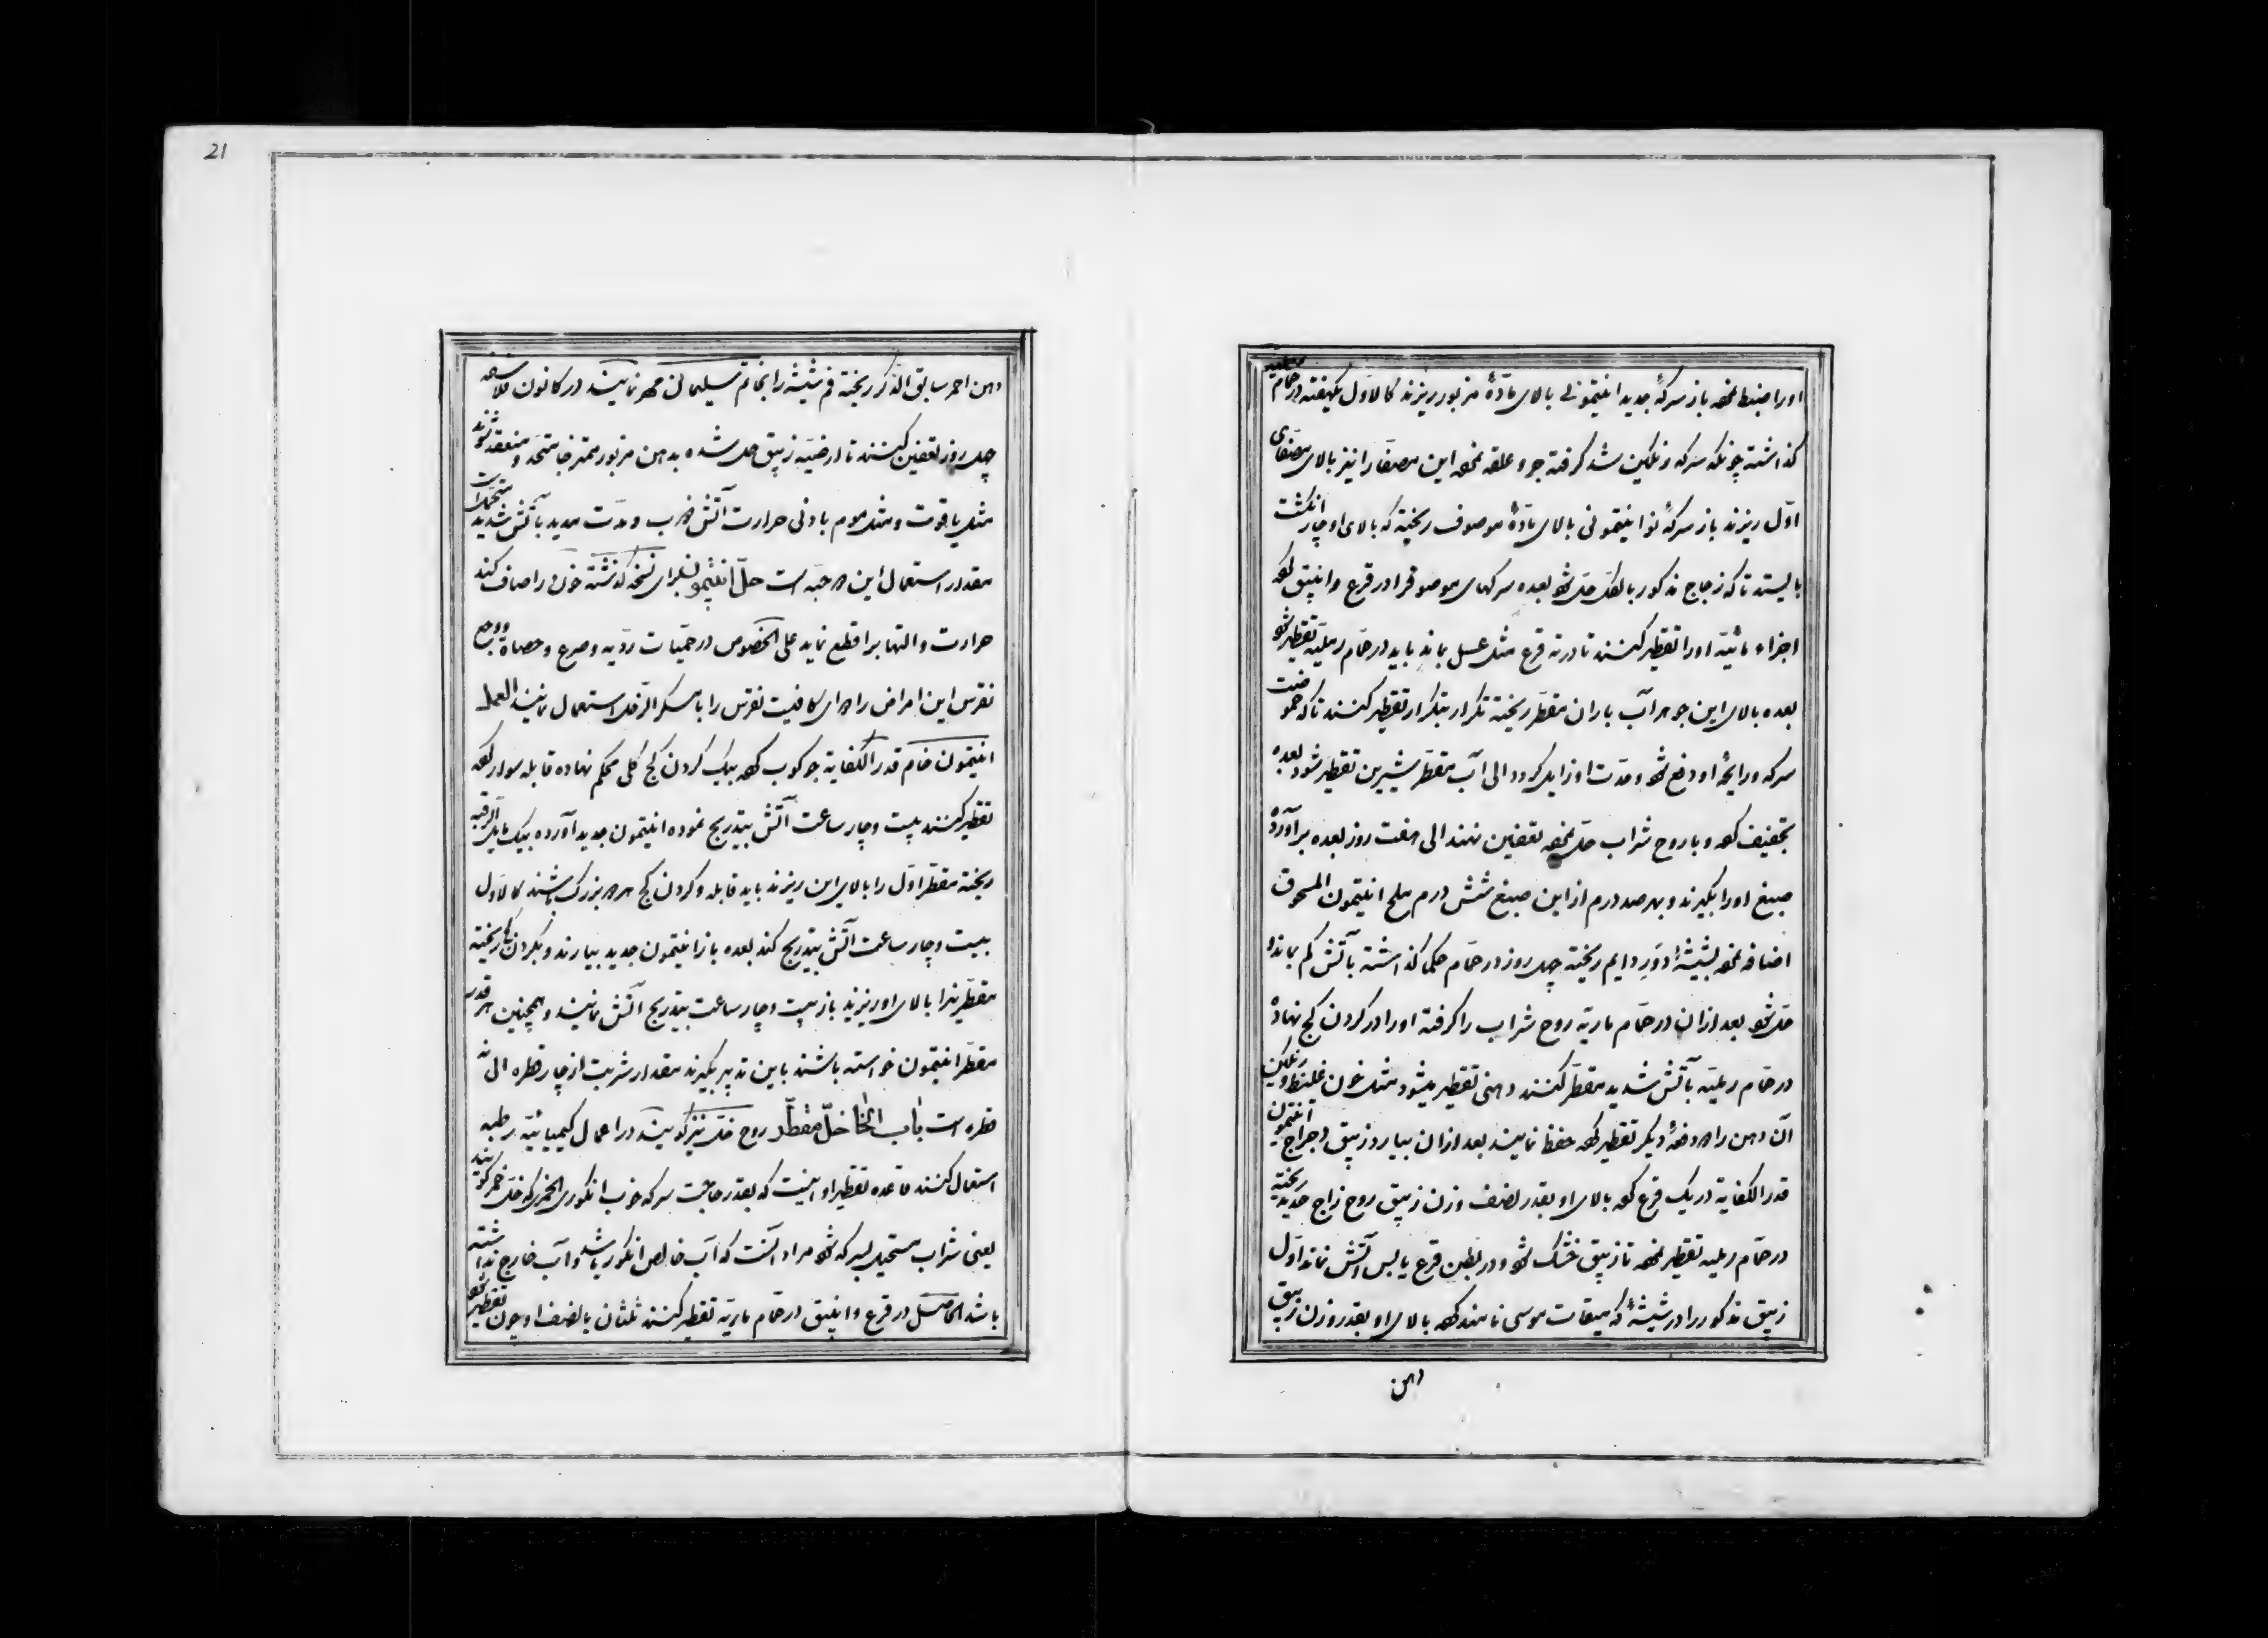 اورا ضبط نموده باز سرکهٔ جدید انتیمونی بالای مادّهٔ مزبور ریزند کالاوّل یکهفته در حمام
گذاشته چونکه سرکه رنگین شد گرفته جر و علقه نموده این مصفّا را نیز بالای مصفّای
اوّل ریزند باز سرکهٔ نو انتیمونی بالای مادّهٔ موصوف ریخته که بالای او چار انگشت
بایستد تا که زجاج مذکور بالکل حل شود بعده سرکهای موصوفرا در قرع و انبیق کرده
اجزاء مائیّه اورا تقطیر کنند تا در ته قرع مثل عسل بماند باید در حمّام رملیّه تقطیر شود
بعده بالای این جوهر آب باران مقطّر ریخته تکرار بتکرار تقطیر کنند تا که حموضت
سرکه و رایحهٔ او دفع شود و حدّت او زایل گردد الی آب مقطّر شیرین تقطیر شود بعده
تجفیف کرده و با روح شراب حل نموده تعفین نهند الی هفت روز بعده برآورده
صبغ اورا بگیرند و بهر صد درم از این صبغ شش درم ملح انتیمون المسحوق
اضافه نموده بشیشهٔ دَوَر دایم ریخته چهل روز در حمّام حکما گذاشته بآتش کم بماند و
حل شود بعد ازان در حمّام ماریّه روح شراب را گرفته اورا در گردن کج نهاده
در حمّام رملیّه بآتش شدید مقطّر کنند دهنی تقطیر میشود مثل خون غلیظ و رنگین
آن دهن را دو دفعهٔ دیگر تقطیر کرده حفظ نمایند بعد ازان بیارد زیبق انتیمون
قدر الکفایة در یک قرع کرده بالای او بقدر نصف وزن زیبق روح زاج جدید ریخته
در حمّام رملیه تقطیر نموده تا زیبق خشک شود و در بطن قرع یابس آتش نماند اوّل
زیبق مذکور را در شیشهٔ که میقات موسی نامند کرده بالای او بقدر وزن زیبق
دهن
21
دهن احمر سابق الذکر ریخته فم شیشه را بخاتم سلیمانی مهر نمایند در کانون
چهل روز تعفین کنند تا ارضیّه زیبق حل شده بدهن مزبور ممتزجا متّحد و منعقد شوند
مثل یاقوت و مثل موم بادنی حرارت آتش ذوب و مدّت مدید بآتش شدید
مقدار استعمال این دو حبّه است حلّ انتیمو برای نسخه گذشته خون را صاف کند
حرارت و التهابرا قطع نماید علی الخصوص در حمّیات ردّیه و صرع و حصاة و وجع
نقرس این امراض را دوای کافیست نقرس را با سکر الزحل استعمال نمایند العمل
انتیمون خام قدر الکفایة جوکوب کرده بیک گردن کج گلی محکم نهاده قابله سوار کرده
تقطیر کنند بیست و چار ساعت آتش بتدریج نموده انتیمون جدید آورده بیک مایل الرقبه
ریخته مقطّر اوّل را بالای این ریزند باید قابله و گردن کج هر دو بزرگ باشند کالاوّل
بیست و چار ساعت آتش بتدریج کند بعده باز انتیمون جدید بیارند و بگردن کج ریخته
مقطّریرا بالای او ریزند باز بیست و چار ساعت بتدریج آتش نمایند و همچنین هر قدر
مقطّر انتیمون خواسته باشند باین تدبیر بگیرند مقدار شربت از چار قطره الی نه
قطره است باب الخا خلّ مقطّر روح خل نیز گویند در اعمال کیمیائیّه رطبه
استعمال کنند قاعده تقطیر او اینست که بقدر حاجت سرکه خوب انگوری الخمری که خل خمر گویند
یعنی شراب مستحیل بسرکه شود مراد آنست که آب خالص انگور باشد و آب خارج نداشته
باشد الحاصل در قرع و انبیق در حمّام ماریّه تقطیر کنند ثلثان یا نصف او چون تقطیر شود